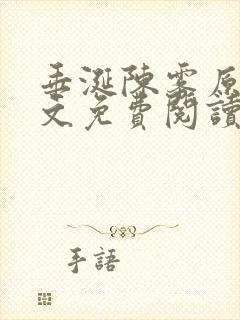 垂涎陳雾原
文免費閱讀
手語